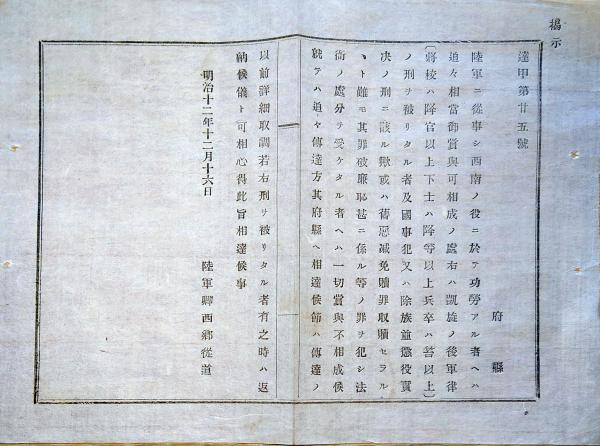 揭示
達甲第廿五號
府縣
陸軍ニ從事シ西南ノ役ニ於テ功勞アル者ヘハ
追々相當御賞與可相成ノ處右ハ凱旋ノ後軍律
〔將校ハ降官以上下士ハ降等以上兵卒ハ笞以上〕
ノ刑ヲ被リタル者及國事犯又ハ除族並懲役實
决ノ刑ニ該ル歟或ハ舊惡减免贖罪收贖セラル
ヽト雖モ其罪破廉恥甚ニ係ル等ノ罪ヲ犯シ法
衙ノ處分ヲ受ケタル者ヘハ一切賞與不相成候
就テハ追々傳達方其府縣ヘ相達候節ハ傳達ノ
以前詳細取調若右刑ヲ被リタル者有之時ハ返
納候儀ト可相心得此旨相達候事
明治十二年十二月十六日
陸軍卿西鄕從道